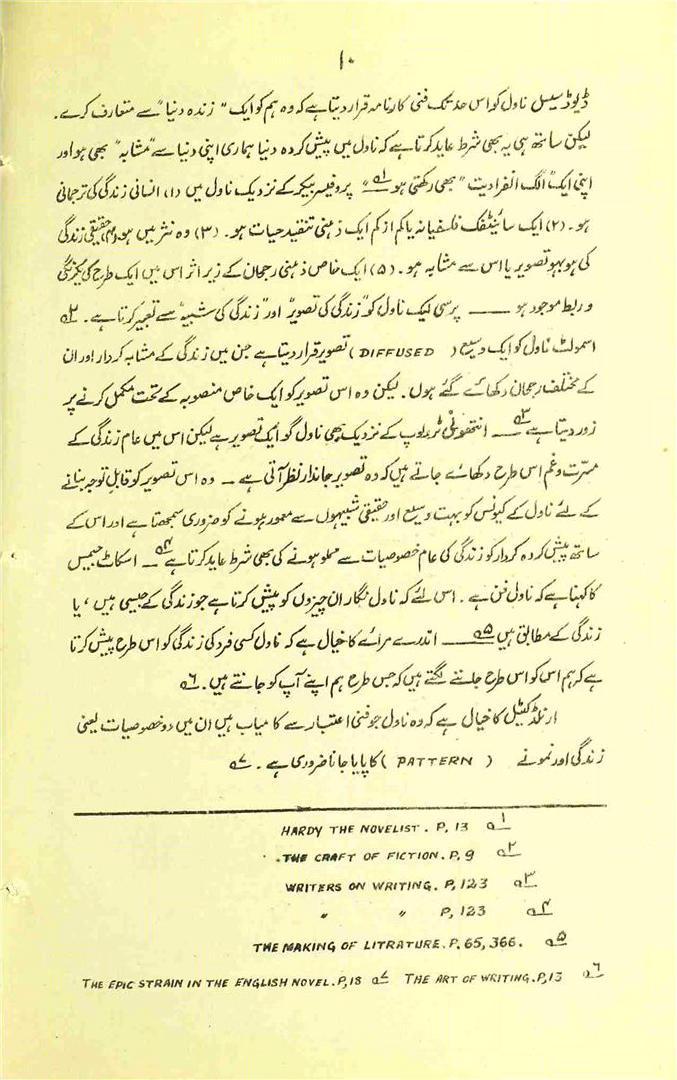 ۱۰
ڈیوڈ سیسل ناول کو اس حد تک فنی کارنامہ قرار دیتا ہے کہ وہ ہم کو ایک ”زندہ دنیا“ سے متعارف کرے۔
لیکن ساتھ ہی یہ بھی شرط عاید کرتا ہے کہ ناول میں پیش کردہ دنیا ہماری اپنی دنیا سے ”مشابہ“ بھی ہو اور
اپنی ایک ”الگ انفرادیت“ بھی رکھتی ہو ۱؎ پروفیسر بیکر کے نزدیک ناول میں (۱) انسانی زندگی کی ترجمانی
ہو۔ (۲) ایک سائینٹفک فلسفیانہ یا کم از کم ایک ذہنی تنقید حیات ہو۔ (۳) وہ نثر میں ہو۔ (۴) حقیقی زندگی
کی ہوبہو تصویر یا اس سے مشابہ ہو۔ (۵) ایک خاص ذہنی رجحان کے زیر اثر اس میں ایک طرح کی یکرنگی
و ربط موجود ہو ــــ پرسی لبک ناول کو ”زندگی کی تصویر“ اور ”زندگی کی شبیہ“ سے تعبیر کرتا ہے۔ ۲؎
اسمولٹ ناول کو ایک وسیع (DIFFUSED) تصویر قرار دیتا ہے جن میں زندگی کے مشابہ کردار اور ان
کے مختلف رجحان دکھائے گئے ہوں۔ لیکن وہ اس تصویر کو ایک خاص منصوبہ کے تحت مکمل کرنے پر
زور دیتا ہے ۳؎ انتھونی ٹرولوپ کے نزدیک بھی ناول گو ایک تصویر ہے لیکن اس میں عام زندگی کے
مسرت و غم اس طرح دکھائے جاتے ہیں کہ وہ تصویر جاندار نظر آتی ہے ۔ وہ اس تصویر کو قابل توجہ بنانے
کے لئے ناول کے کینوس کو بہت وسیع اور حقیقی شبیہوں سے معمور ہونے کو ضروری سمجھتا ہے اور اس کے
ساتھ پیش کردہ کردار کو زندگی کی عام خصوصیات سے مملو ہونے کی بھی شرط عاید کرتا ہے ۴؎ ۔ اسکاٹ جیمس
کا کہنا ہے کہ ناول فن ہے ۔ اس لئے کہ ناول نگار ان چیزوں کو پیش کرتا ہے جو زندگی کے جیسی ہیں ، یا
زندگی کے مطابق ہیں ۵؎ ــــ اندرے مرائے کا خیال ہے کہ ناول کسی فرد کی زندگی کو اس طرح پیش کرتا
ہے کہ ہم اس کو اس طرح جاننے لگتے ہیں کہ جس طرح ہم اپنے آپ کو جانتے ہیں۔ ۶؎
ارنلڈ کیٹل کا خیال ہے کہ وہ ناول جو فنی اعتبار سے کامیاب ہیں ان میں دو خصوصیات یعنی
زندگی اور نمونے (PATTERN) کا پایا جانا ضروری ہے ۔ ۷؎
HARDY THE NOVELIST. P, 13 ۱؎
THE CRAFT OF FICTION. P, 9 ۲؎
WRITERS ON WRITING. P, 123 ۳؎
” ” P, 123 ۴؎
THE MAKING OF LITRATURE. P. 65, 366. ۵؎
THE EPIC STRAIN IN THE ENGLISH NOVEL. P, 18 ۷؎ THE ART OF WRITING. P, 13 ۶؎